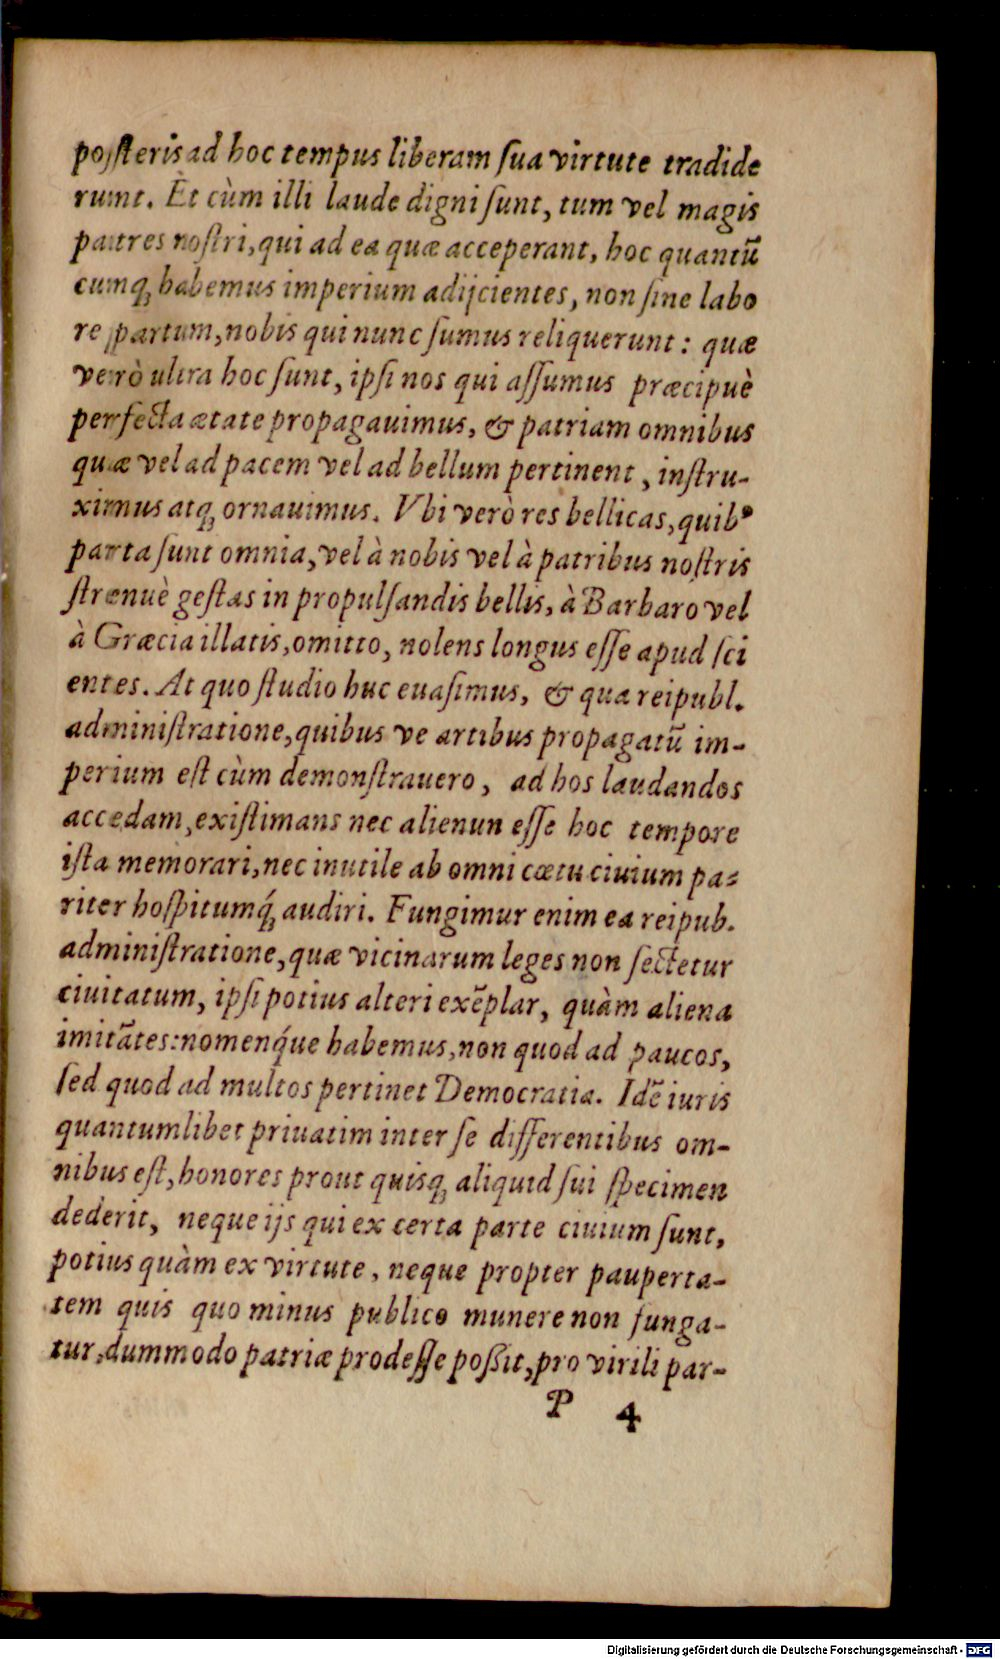 posteris ad hoc tempus liberam ſua virtute tradide
runt. Et cùm illi laude digni ſunt, tum vel magis
patres noſtri, qui ad ea quæ acceperant, hoc quantũ
cumq; habemus imperium adijcientes, non ſine labo
re partum, nobis qui nunc ſumus reliquerunt: quæ
verò ultra hoc ſunt, ipſi nos qui aſſumus præcipuè
perfecta ætate propagauimus, & patriam omnibus
quæ vel ad pacem vel ad bellum pertinent, inſtru-
ximus atq; ornauimus. Vbi verò res bellicas, quibꝰ
parta ſunt omnia, vel à nobis vel à patribus noſtris
ſtrenuè geſtas in propulſandis bellis, à Barbaro vel
à Græcia illatis, omitto, nolens longus eſſe apud ſci
entes. At quo ſtudio huc euaſimus, & qua reipubl.
adminiſtratione, quibus ve artibus propagatũ im-
perium eſt cùm demonſtrauero, ad hos laudandos
accedam, exiſtimans nec alienun eſſe hoc tempore
iſta memorari, nec inutile ab omni cœtu ciuium pa-
riter hoſpitumq́; audiri. Fungimur enim ea reipub.
adminiſtratione, quæ vicinarum leges non ſectetur
ciuitatum, ipſi potius alteri exẽplar, quàm aliena
imitãtes: nomenq́ue habemus, non quod ad paucos,
ſed quod ad multos pertinet Democratia. Idẽ iuris
quantumlibet priuatim inter ſe differentibus om-
nibus eſt, honores prout quisq; aliquid ſui ſpecimen
dederit, neque ijs qui ex certa parte ciuium ſunt,
potius quàm ex virtute, neque propter pauperta-
tem quis quo minus publico munere non funga-
tur, dummodo patriæ prodeſſe poßit, pro virili par-
P 4
Digitalisierung gefördert durch die Deutsche Forschungsgemeinschaft - DFG